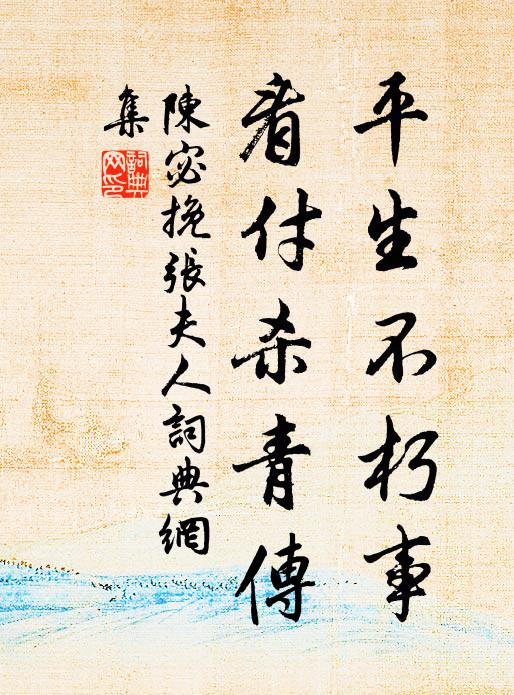 平生不朽事
看付杀青傳
陳宓挽張夫人詞典網
集
詞典網印